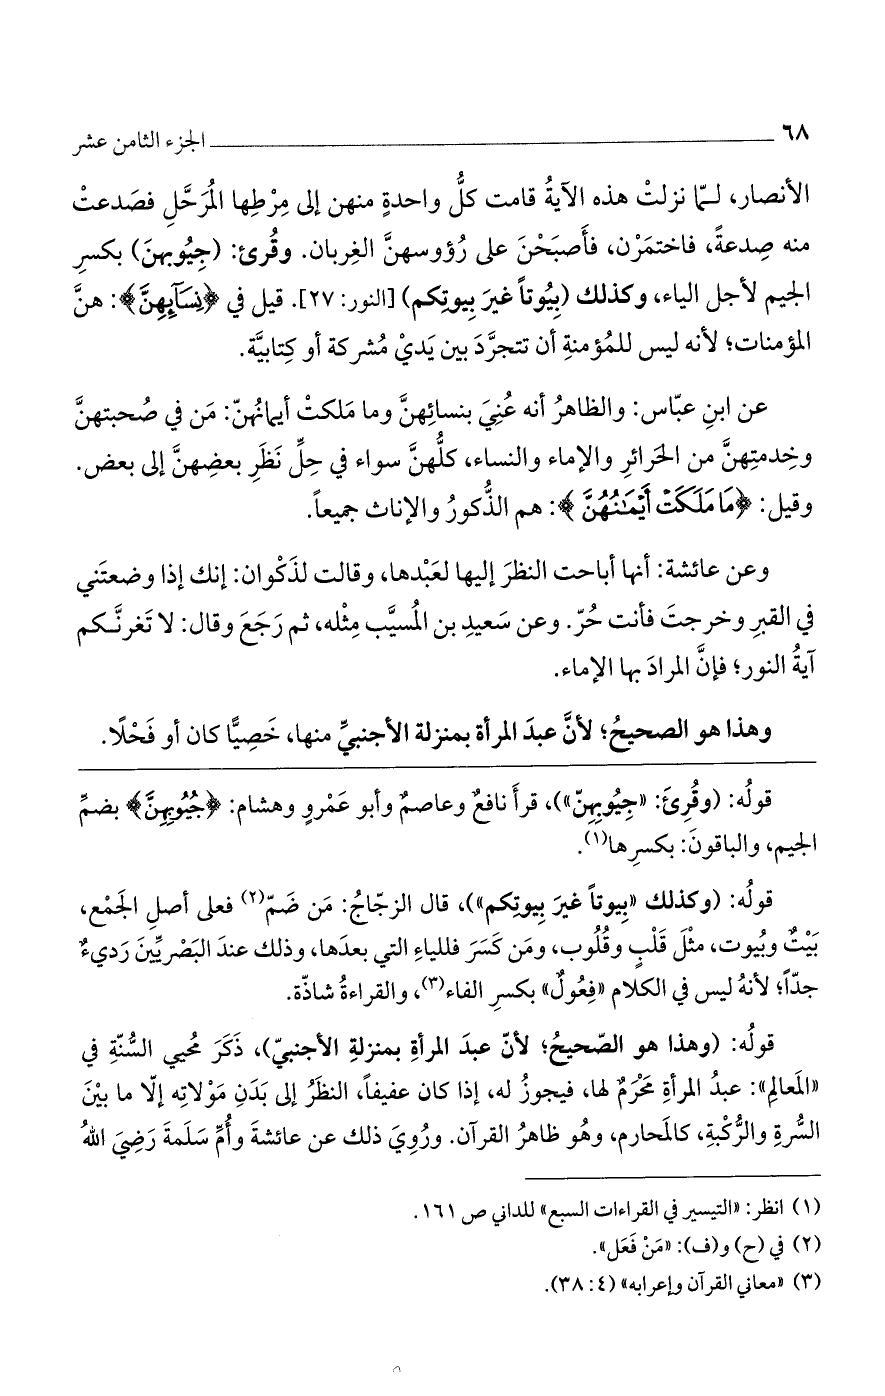 ٦٨ الجزء الثامن عشر
الأنصار، لـمّا نزلتْ هذه الآيةُ قامت كلُّ واحدةٍ منهن إلى مِرْطِها المُرَحَّلِ فصَدعتْ
منه صِدعةً، فاختمَرْن، فأَصبَحْنَ على رُؤوسهنَّ الغِربان. وقُرئ: (جِيُوبهنَ) بكسرِ
الجيم لأجل الياء، وكذلك (بِيُوتاً غيرَ بِيوتِكم) [النور: ٢٧]. قيل في ﴿نِسَآئِهِنَّ﴾: هنَّ
المؤمنات؛ لأنه ليس للمُؤمنةِ أن تتجرَّدَ بين يَديْ مُشركة أو كِتابيَّة.
عن ابنِ عبّاس: والظاهرُ أنه عُنِيَ بنسائِهنَّ وما مَلكتْ أيمانُهنّ: مَن في صُحبتهنَّ
وخِدمتِهنَّ من الحَرائرِ والإماء والنساء، كلُّهنَّ سواء في حِلِّ نَظَرِ بعضِهنَّ إلى بعض.
وقيل: ﴿مَا مَلَكَتْ أَيْمَٰنُهُنَّ﴾: هم الذُّكورُ والإناث جميعاً.
وعن عائشة: أنها أباحت النظرَ إليها لعَبْدها، وقالت لذَكْوان: إنك إذا وضعتَني
في القبرِ وخرجتَ فأنت حُرّ. وعن سَعيدِ بن المُسيَّب مِثْله، ثم رَجَعَ وقال: لا تَغرنَّـكم
آيةُ النور؛ فإنَّ المرادَ بها الإماء.
وهذا هو الصحيحُ؛ لأنَّ عبدَ المرأة بمنزلة الأجنبيِّ منها، خَصِيًّا كان أو فَحْلًا.
قولُه: (وقُرِئَ: «جِيُوبِهِنّ»)، قرأَ نافعٌ وعاصمٌ وأبو عَمْرٍو وهشام: ﴿جُيُوبِهِنَّ﴾ بضمِّ
الجيم، والباقونَ: بكسرِها(١).
قولُه: (وكذلك «بِيوتاً غيرَ بِيوتِكم»)، قال الزجّاجُ: مَن ضَمّ(٢) فعلى أصلِ الجَمْع،
بَيْتٌ وبُيوت، مثْلَ قَلْبٍ وقُلُوب، ومَن كَسَرَ فللياءِ التي بعدَها، وذلك عندَ البَصْريِّينَ رَديءٌ
جدّاً؛ لأنهُ ليس في الكلام «فِعُولٌ» بكسرِ الفاء(٣)، والقراءةُ شاذّة.
قولُه: (وهذا هو الصّحيحُ؛ لأنّ عبدَ المرأةِ بمنزلةِ الأجنبيّ)، ذَكَرَ مُحيي السُّنّة في
«المَعالِم»: عبدُ المرأةِ مَحْرَمٌ لها، فيجوزُ له، إذا كان عفيفاً، النظَرُ إلى بَدَنِ مَوْلاتِه إلّا ما بيْنَ
السُّرةِ والرُّكْبةِ، كالمَحارم، وهُو ظاهرُ القرآن. ورُوِيَ ذلك عن عائشةَ وأُمِّ سَلَمةَ رَضِيَ اللهُ
(١) انظر: «التيسير في القراءات السبع» للداني ص ١٦١.
(٢) في (ح) و(ف): «مَنْ فَعَل».
(٣) «معاني القرآن وإعرابه» (٤: ٣٨).